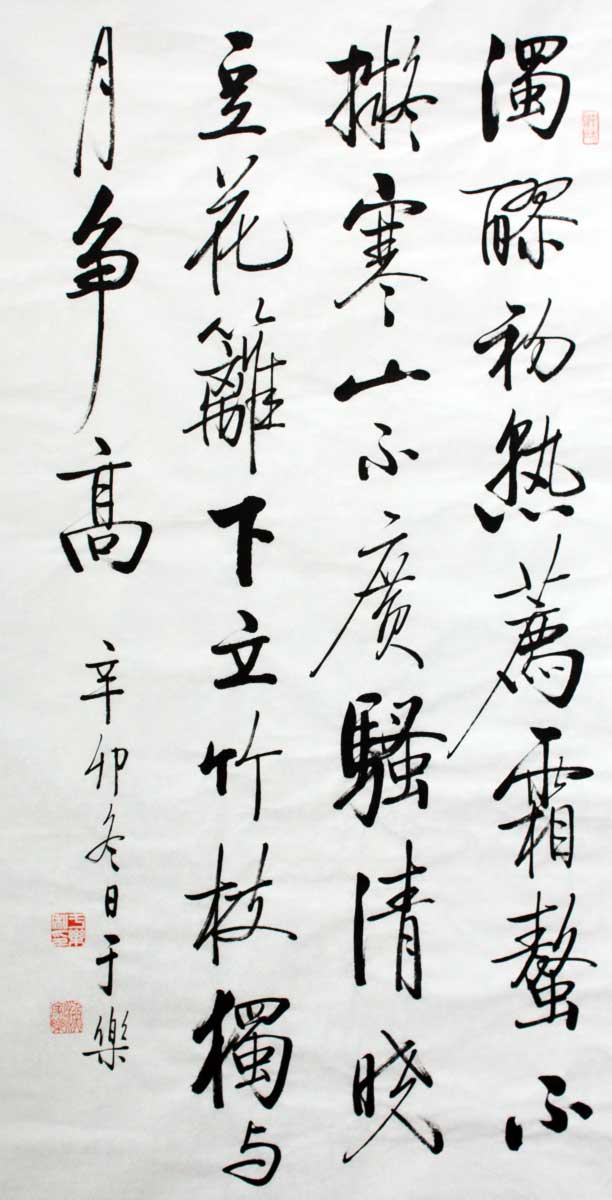 濁醪初熟薦霜螯不
擬寒山不廣騷清曉
豆花籬下立竹枝獨与
月争高
辛卯冬日于樂